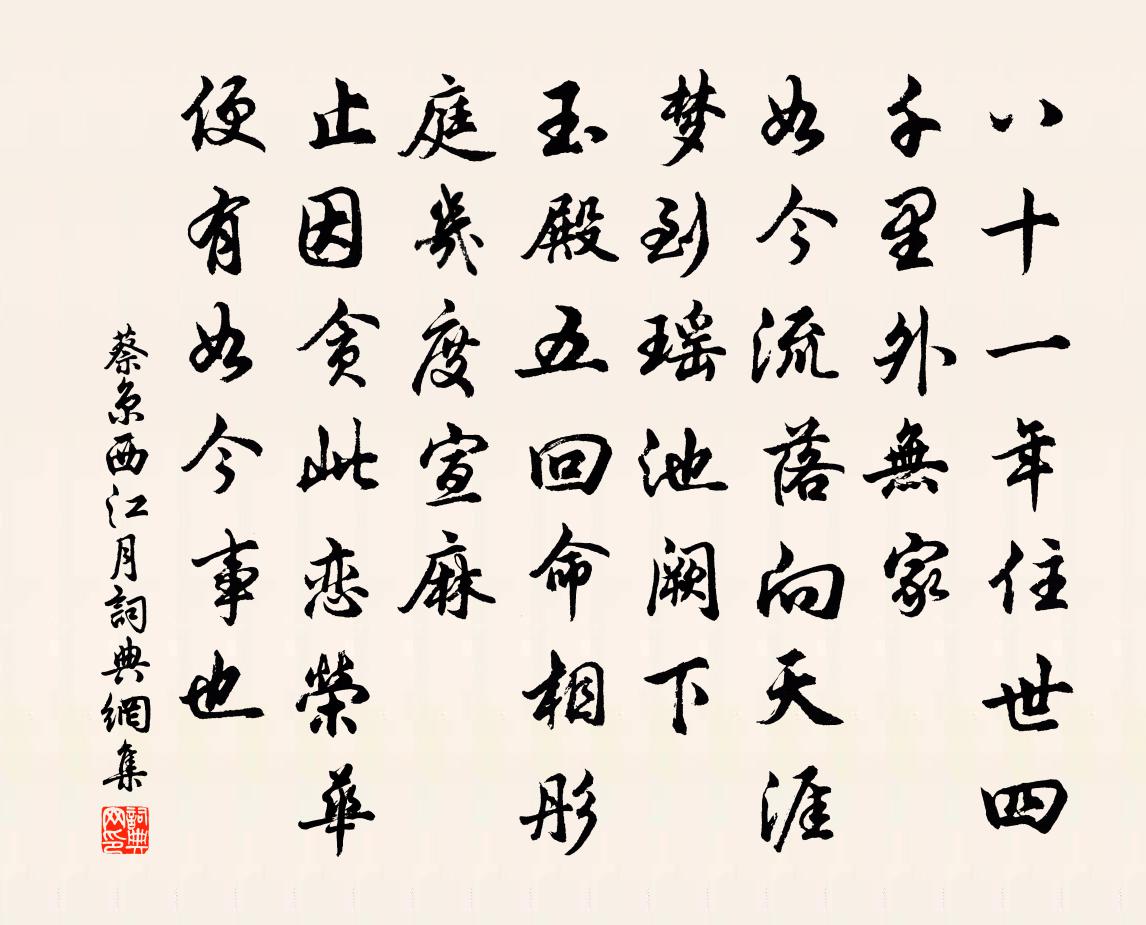 八十一年住世四
千里外無家
如今流落向天涯
梦到瑶池阙下
玉殿五回命相彤
庭几度宣麻
止因贪此恋榮華
便有如今事也
蔡京西江月詞典網集
詞典网印